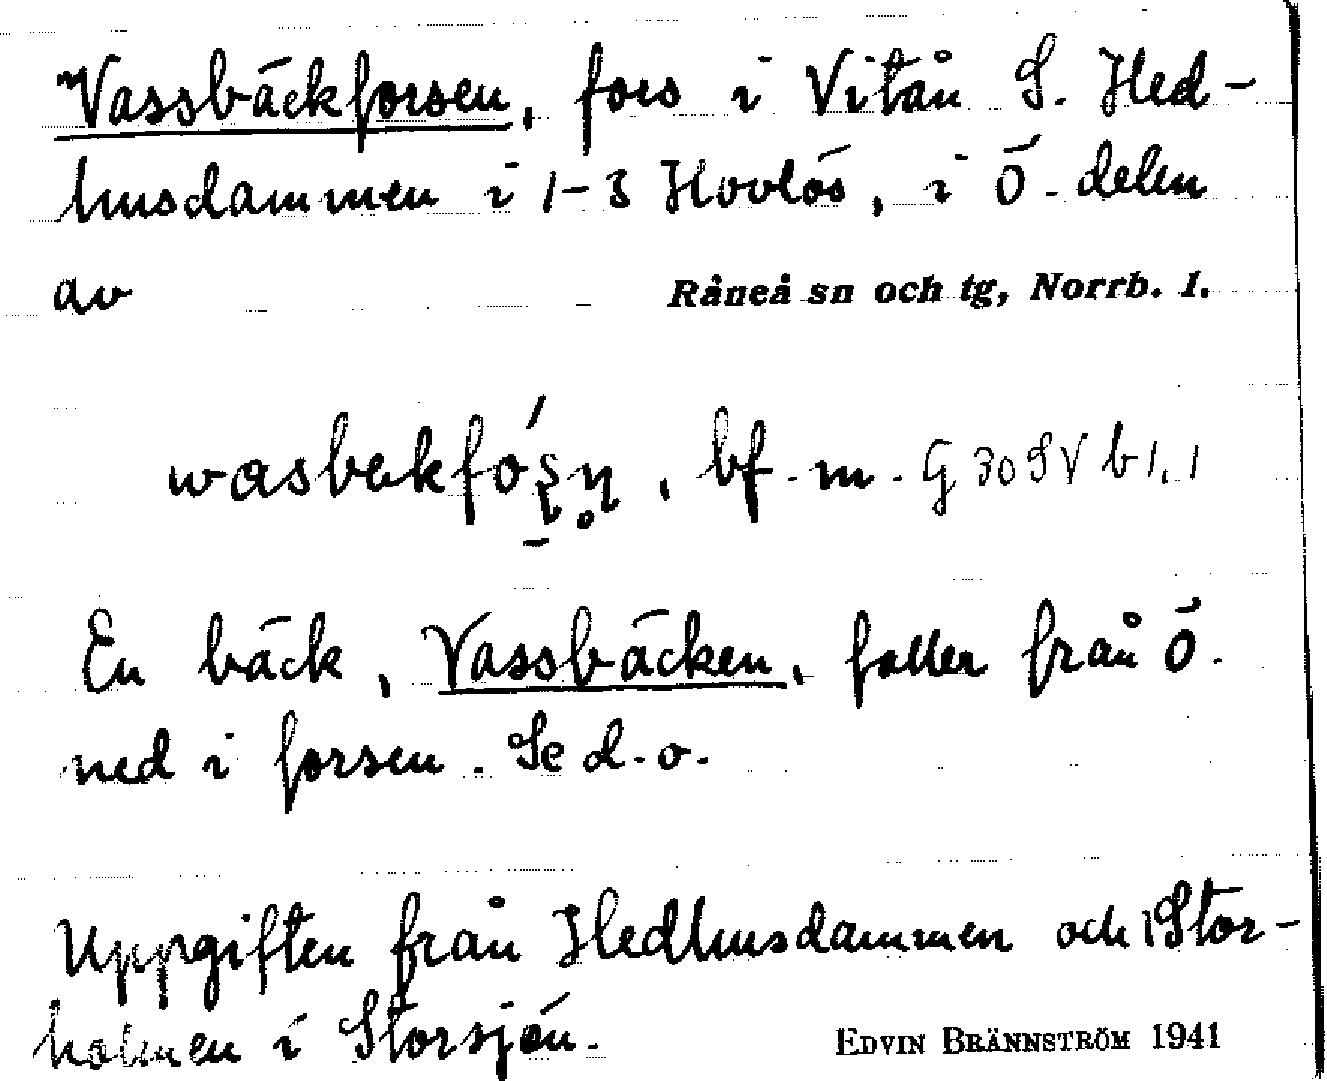 Vassbäckforsen, fors i Vitån S. Hed-
husdammen i 1-3 Hovlös, i Ö. delen
av Råneå sn och tg, Norrb. l.
bf. m. G 30 SV b 1. 1
En bäck, Vassbäcken, faller från Ö.
ned i forsen. Se d. o.
Uppgiften från Hedhusdammen och Stor-
holmen i Storsjön.
EDVIN BRÄNNSTRÖM 1941